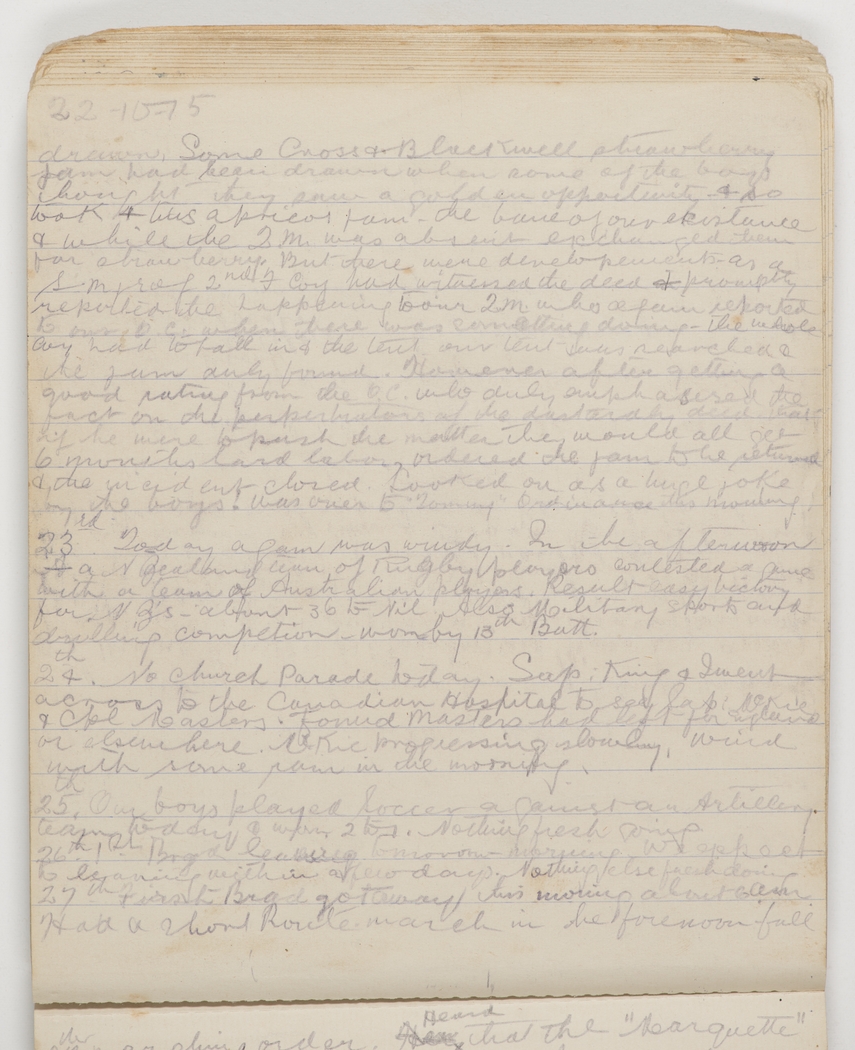 22-10-15
drawn. Some Cross & Blackwell strawberry
jam had been drawn when some of the boys
thought they saw a golden opportunity & so
took 4 tins apricot jam - the bane of our existance
& while the Q.M. was absent exchanged them
for strawberry. But there were developements as a
S.M. of 2nd F Coy had witnessed the deed & promptly
reported the happening to our Q.M. who again reported
to our O.C. when there was something doing - the whole
coy had to fall in & the tent our tent was searched &
the jam duly found. However after getting a
good rating from the O.C. who duly emphasized the
fact on the perpetrators of the dastardly deed that
if he were to push the matter they would all get
6 months hard labor, ordered the jam to be returned
& the incident closed. Looked on as a huge joke
by the boys. Was over to "Tommy" Ordinance this morning
23rd Today again was windy. In the afternoon
a N Zealand team of Rugby players contested a game
with a team of Australian players. Result easy victory
for N Z's - about 36 to Nil. Also Military sports and
drilling competion - won by 13th Batt.
24th. No Church Parade today. Sap. King & I went
across to the Canadian Hospital to see Sap. McKie
& Cpl Masters. Found Masters had left for England
or elsewhere. McKie progressing slowly, Wind
with some rain in the morning.
25th. Our boys played Soccer against an Artillery
team today & won 2 to 1. Nothing fresh going
26th 1st Brgd leaving tomorrow morning. We expect
to be going within a few days. Nothing else fresh doing
27th First Brgd got away this morning about 6am
Had a short Route march in the forenoon full
marching order. Heard that the "Marquette"